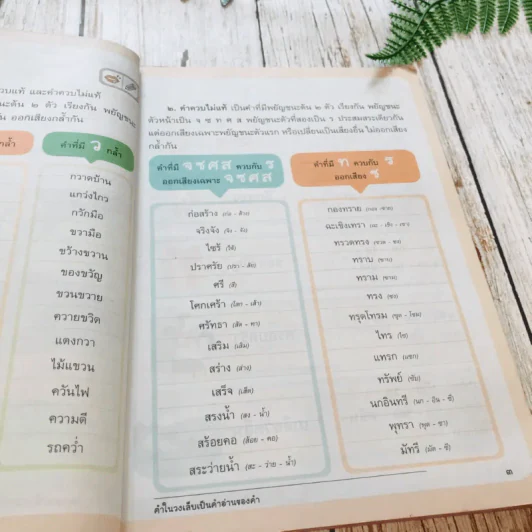 วบแท้ และคำควบไม่แท้
นะต้น ๒ ตัว เรียงกัน พยัญชนะ
ออกเสียงกล้ำกัน
กล้ำ
คำที่มี ว กล้ำ
กวาดบ้าน
แกว่งไกว
กวักมือ
ขวามือ
ขว้างขวาน
ของขวัญ
ขวนขวาย
ควายขวิด
แตงกวา
ไม้แขวน
ควันไฟ
ความดี
รถคว่ำ
๒. คำควบไม่แท้ เป็นคำที่มีพยัญชนะต้น ๒ ตัว เรียงกัน พยัญชนะ
ตัวหน้าเป็น จ ซ ท ศ ส พยัญชนะตัวที่สองเป็น ร ประสมสระเดียวกัน
แต่ออกเสียงเฉพาะพยัญชนะตัวแรก หรือเปลี่ยนเป็นเสียงอื่น ไม่ออกเสียง
กล้ำกัน
คำที่มี จซศส ควบกับ ร
ออกเสียงเฉพาะ จซศส
ก่อสร้าง (ก่อ - ส้าง)
จริงจัง (จิง - จัง)
ไซร้ (ไซ้)
ปราศรัย (ปฺรา - ไส)
ศรี (สี)
โศกเศร้า (โสก - เส้า)
ศรัทธา (สัด - ทา)
เสริม (เสิม)
สร่าง (ส่าง)
เสร็จ (เส็ด)
สรงน้ำ (สง - น้ำ)
สร้อยคอ (ส้อย - คอ)
สระว่ายน้ำ (สะ - ว่าย - น้ำ)
คำที่มี ท ควบกับ ร
ออกเสียง ซ
กองทราย (กอง - ซาย)
ฉะเชิงเทรา (ฉะ - เชิง - เซา)
ทรวดทรง (ซวด - ซง)
ทราบ (ซาบ)
ทราม (ซาม)
ทรง (ซง)
ทรุดโทรม (ซุด - โซม)
ไทร (ไซ)
แทรก (แซก)
ทรัพย์ (ซับ)
นกอินทรี (นก - อิน - ซี)
พุทรา (พุด - ซา)
มัทรี (มัด - ซี)
คำในวงเล็บเป็นคำอ่านของคำ
๓